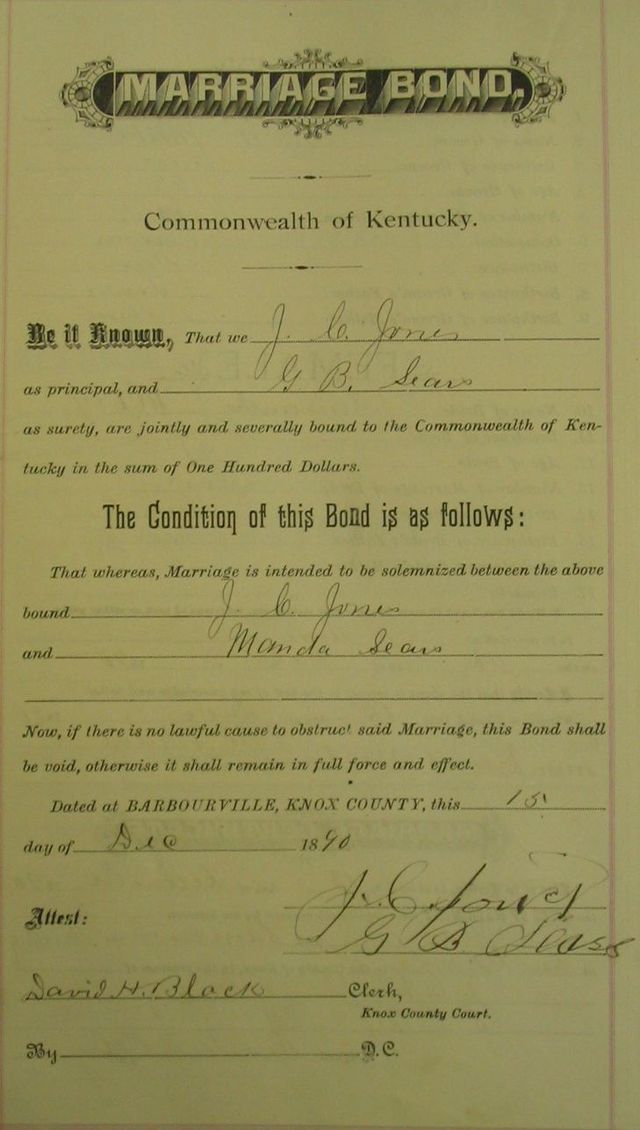 MARRIAGE BOND.
Commonwealth of Kentucky.
Be it Known, That we J. C. Jones
as principal, and G B. Sears
as surety, are jointly and severally bound to the Commonwealth of Ken-
tucky in the sum of One Hundred Dollars.
The Condition of this Bond is as follows:
That whereas, Marriage is intended to be solemnized between the above
bound J. C. Jones
and Manda Sears
Now, if there is no lawful cause to obstruct said Marriage, this Bond shall
be void, otherwise it shall remain in full force and effect.
Dated at BARBOURVILLE, KNOX COUNTY, this 15
day of Dec 1890
J. C. Jones
Attest:
G B Sears
David H. Black Clerk,
Knox County Court.
By D.C.